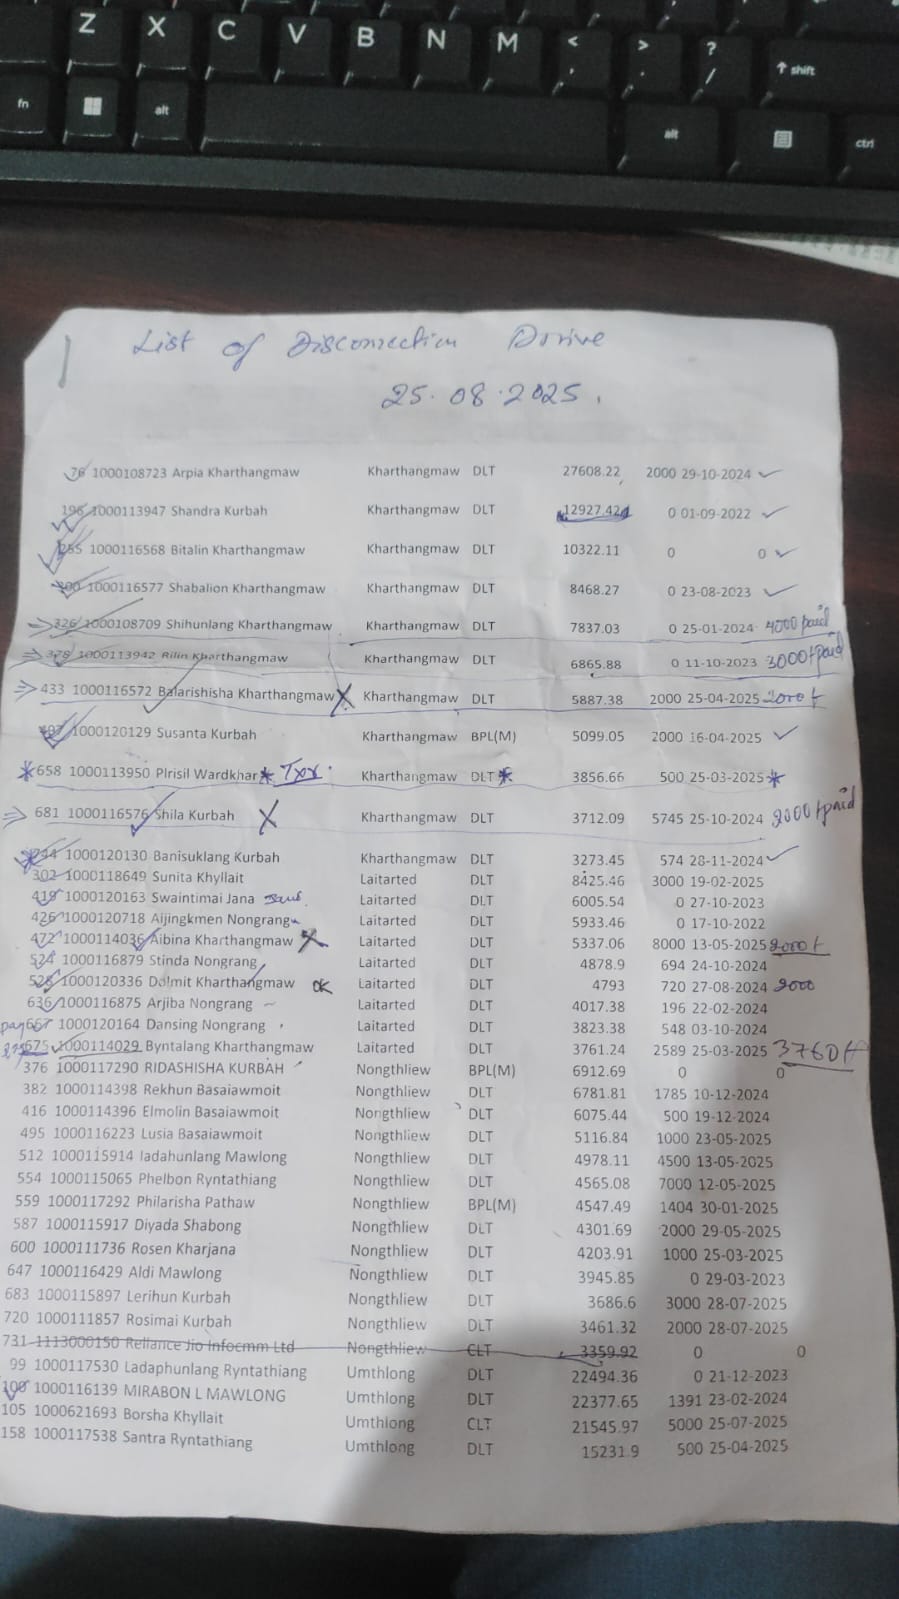 Z X C V B N M < , > . ? / ↑ shift
fn alt alt ctrl
List of Disconnection Drive
25.08.2025.
76 1000108723 Arpia Kharthangmaw Kharthangmaw DLT 27608.22 2000 29-10-2024 ✓
196 1000113947 Shandra Kurbah Kharthangmaw DLT 12927.42 0 01-09-2022 ✓
255 1000116568 Bitalin Kharthangmaw Kharthangmaw DLT 10322.11 0 0 ✓
300 1000116577 Shabalion Kharthangmaw Kharthangmaw DLT 8468.27 0 23-08-2023 ✓
326 1000108709 Shihunlang Kharthangmaw Kharthangmaw DLT 7837.03 0 25-01-2024 4000 paid
378 1000113942 Rilin Kharthangmaw Kharthangmaw DLT 6865.88 0 11-10-2023 3000 paid
433 1000116572 Balarishisha Kharthangmaw X Kharthangmaw DLT 5887.38 2000 25-04-2025 2000
1000120129 Susanta Kurbah Kharthangmaw BPL(M) 5099.05 2000 16-04-2025 ✓
* 658 1000113950 Plrisil Wardkhar * Kharthangmaw DLT * 3856.66 500 25-03-2025 *
681 1000116576 Shila Kurbah X Kharthangmaw DLT 3712.09 5745 25-10-2024 2000 paid
744 1000120130 Banisuklang Kurbah Kharthangmaw DLT 3273.45 574 28-11-2024 ✓
302 1000118649 Sunita Khyllait Laitarted DLT 8425.46 3000 19-02-2025
419 1000120163 Swaintimai Jana Laitarted DLT 6005.54 0 27-10-2023
426 1000120718 Aijingkmen Nongrang Laitarted DLT 5933.46 0 17-10-2022
472 1000114036 Aibina Kharthangmaw X Laitarted DLT 5337.06 8000 13-05-2025 2000
524 1000116879 Stinda Nongrang Laitarted DLT 4878.9 694 24-10-2024
528 1000120336 Dalmit Kharthangmaw OK Laitarted DLT 4793 720 27-08-2024 2000
636 1000116875 Arjiba Nongrang Laitarted DLT 4017.38 196 22-02-2024
667 1000120164 Dansing Nongrang Laitarted DLT 3823.38 548 03-10-2024
675 1000114029 Byntalang Kharthangmaw Laitarted DLT 3761.24 2589 25-03-2025 3760
376 1000117290 RIDASHISHA KURBAH Nongthliew BPL(M) 6912.69 0 0
382 1000114398 Rekhun Basaiawmoit Nongthliew DLT 6781.81 1785 10-12-2024
416 1000114396 Elmolin Basaiawmoit Nongthliew DLT 6075.44 500 19-12-2024
495 1000116223 Lusia Basaiawmoit Nongthliew DLT 5116.84 1000 23-05-2025
512 1000115914 Iadahunlang Mawlong Nongthliew DLT 4978.11 4500 13-05-2025
554 1000115065 Phelbon Ryntathiang Nongthliew DLT 4565.08 7000 12-05-2025
559 1000117292 Philarisha Pathaw Nongthliew BPL(M) 4547.49 1404 30-01-2025
587 1000115917 Diyada Shabong Nongthliew DLT 4301.69 2000 29-05-2025
600 1000111736 Rosen Kharjana Nongthliew DLT 4203.91 1000 25-03-2025
647 1000116429 Aldi Mawlong Nongthliew DLT 3945.85 0 29-03-2023
683 1000115897 Lerihun Kurbah Nongthliew DLT 3686.6 3000 28-07-2025
720 1000111857 Rosimai Kurbah Nongthliew DLT 3461.32 2000 28-07-2025
731 1113000150 Reliance Jio Infocmm Ltd Nongthliew CLT 3359.92 0 0
99 1000117530 Ladaphunlang Ryntathiang Umthlong DLT 22494.36 0 21-12-2023
100 1000116139 MIRABON L MAWLONG Umthlong DLT 22377.65 1391 23-02-2024
105 1000621693 Borsha Khyllait Umthlong CLT 21545.97 5000 25-07-2025
158 1000117538 Santra Ryntathiang Umthlong DLT 15231.9 500 25-04-2025